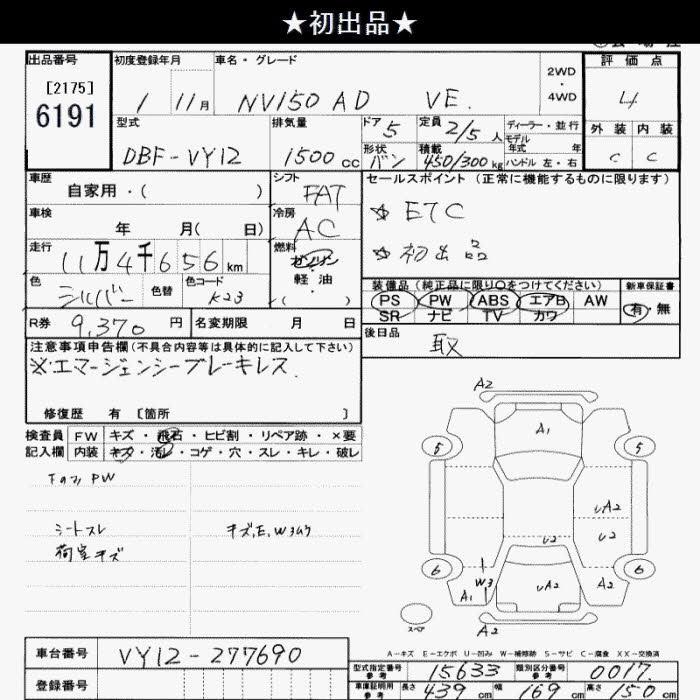 ★初出品★
出品番号 初度登録年月 車名・グレード 評価点
[2175]
6191
1 11月 NV150 AD VE. 2WD・4WD 4
型式 排気量 ドア 5 定員 2/5人 ディーラー・並行 外装 内装
DBF-VY12 1500cc 形状 バン 積載 450/300kg モデル年式 年式 ハンドル 左・右 C C
車歴 シフト セールスポイント (正常に機能するものに限ります)
自家用・( ) FAT ☆ ETC
車検 冷房
年 月( 日) AC ☆ 初出品
走行 燃料
11万4千656km ガソリン
軽・油
( )
色 色替 色コード 装備品(純正品に限り○をつけてください) 新車保証書
シルバー K23 PS PW ABS エアB AW 有・無
SR ナビ TV カワ
R券 9,370円 名変期限 月 日 後日品
取
注意事項申告欄(不具合内容等は具体的に記入して下さい)
※エマージェンシーブレーキレス.
修復歴 有 [箇所 ]
検査員 FW キズ・飛石・ヒビ割・リペア跡・×要
記入欄 内装 キズ・汚レ・コゲ・穴・スレ・キレ・破レ
PW
シートスレ キズ,E,W3
荷室キズ
A2
A1
5 5
UA2
U2
U2
6 6
W3 UA2 A2
A1
スペア A2
A-キズ E-エクボ U-凹み W-補修跡 S-サビ C-腐食 XX-交換済
車台番号 VY12-277690
型式指定番号 参考 15633 類別区分番号 参考 0017
登録番号
車庫証明用 参考 長さ 439cm 幅 169cm 高さ 150cm